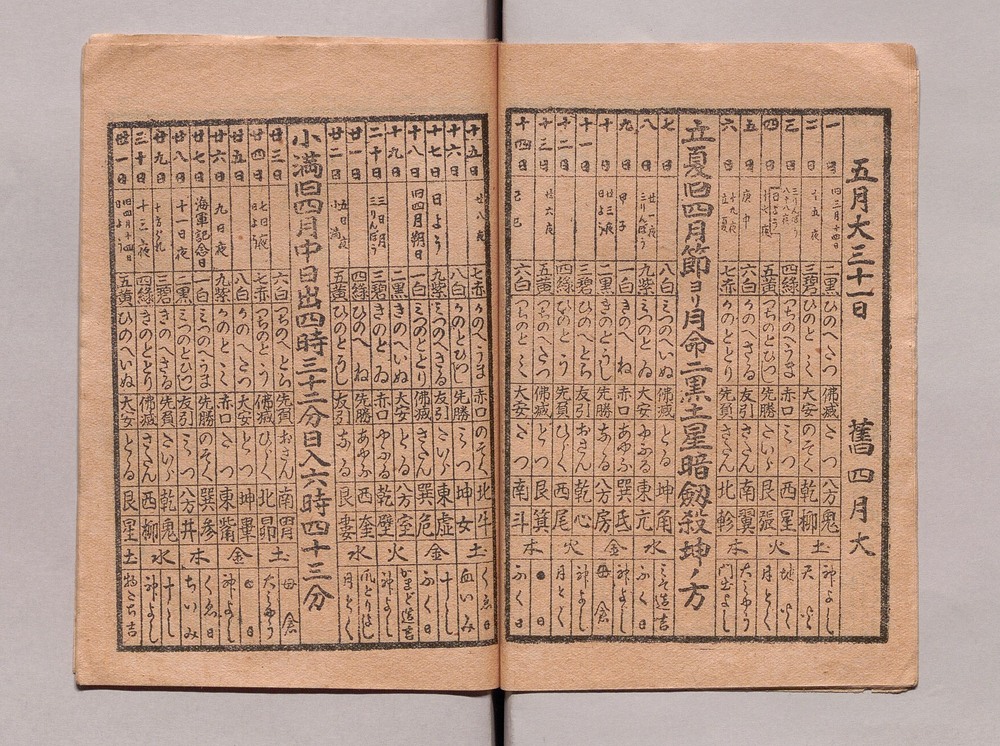 五月大三十一日 舊四月大
一日 旧三月十四日 二黒 ひのへたつ 佛滅 八方 鬼 神よし
二日 十五夜 三碧 ひのとミ 大安 乾 柳 土
三日 八十八夜 四緑 つちのへうま 赤口 ミつ 西 星
四日 五黄 つちのとひつし 先勝 たいら 艮 張 火 月とく
五日 庚申 六白 かのへさる 友引 さたん 南 翼 大ミやう
六日 立夏 七赤 かのととり 先負 とる 北 軫 木
七日 八白 みつのへいぬ 佛滅 坤 角
八日 三りんぼう 九紫 みつのとゐ 大安 やふる 東 亢 水 ふく日
九日 甲子 一白 きのへね 赤口 あやふ 巽 氐 神よし
十日 廿三夜 二黒 きのとうし 先勝 なる 八方 房 金 母倉
十一日 三碧 ひのへとら 友引 おさん 乾 心
十二日 四緑 ひのとう 先負 ひらく 西 尾 火 月とく
十三日 廿六夜 五黄 つちのへたつ 佛滅 とつ 艮 箕
十四日 己巳 六白 つちのとミ 大安 南 斗 木 ふく日
立夏旧四月節ヨリ月命二黒土星暗劔殺坤ノ方
十五日 廿八夜 七赤 かのへうま 赤口 のそく 北 牛 土 くゑ日
十六日 八白 かのとひつし 先勝 ミつ 坤 女 血いみ
十七日 日よう 九紫 ミつのへさる 友引 たいら 東 虚 金 十し
十八日 旧四月朔日 一白 ミつのととり 佛滅 さたん 巽 危 ふく日
十九日 二黒 きのへいぬ 大安 とる 八方 室 火 かまど造吉
二十日 三日月 三りんぼう 三碧 きのとゐ 赤口 やふる 乾 壁 神よし
廿一日 四緑 ひのへね 先勝 あやふ 西 奎 水 爪とりよし
廿二日 五日夜 小満 五黄 ひのとうし 友引 なる 艮 婁 月とく
小満旧四月中日出四時三十二分日入六時四十三分
廿三日 六白 つちのへとら 先負 おさん 南 胃 土 母倉
廿四日 七日夜 日よう 七赤 つちのとう 佛滅 ひらく 北 昴 大ミやう
廿五日 八白 かのへたつ 大安 とつ 坤 畢 金
廿六日 九日夜 九紫 かのとミ 赤口 東 觜 神よし
廿七日 海軍記念日 一白 ミつのへうま 先勝 のそく 巽 参 木 くゑ日
廿八日 十一日夜 二黒 ミつのとひつし 友引 ミつ 八方 井 ちいみ
廿九日 三碧 きのへさる 先負 たいら 乾 鬼 水 十し
三十日 十三夜 四緑 きのととり 佛滅 さたん 西 柳 神よし
卅一日 旧四月十四日 日よう 五黄 ひのへいぬ 大安 とる 艮 星 土